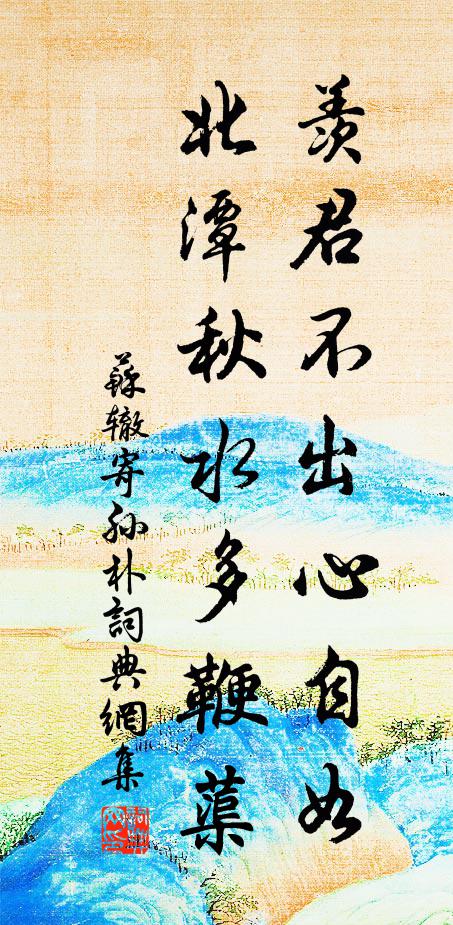 羨君不出心自如
北潭秋水多鞭蕖
蘇辙寄孙朴詞典網集